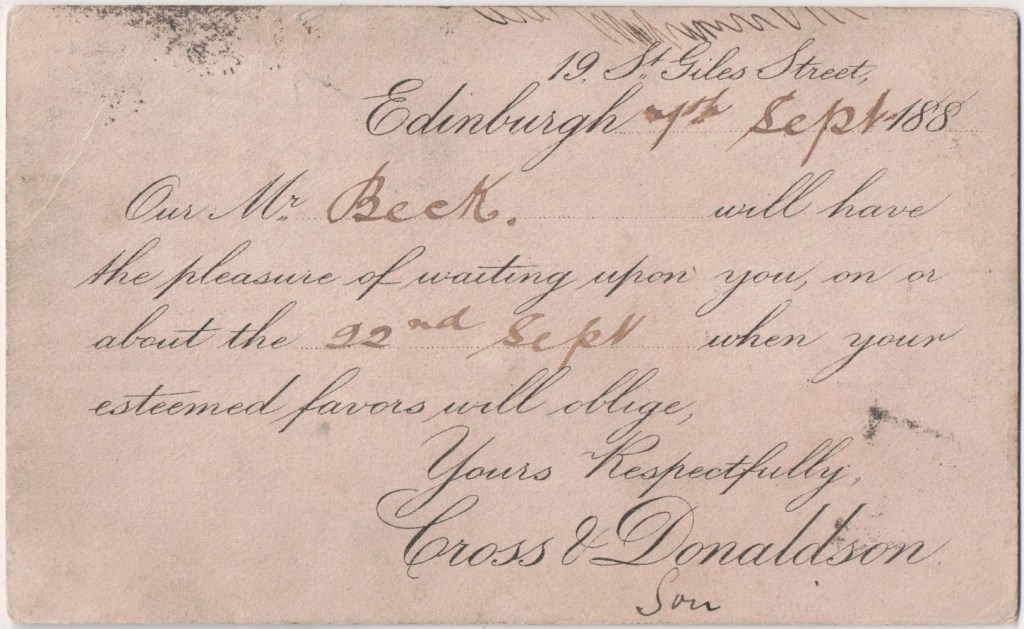 19, St. Giles Street,
Edinburgh 7th Sept 188
Our Mr. Beck. will have
the pleasure of waiting upon you, on or
about the 22nd Sept when your
esteemed favors will oblige,
Yours Respectfully,
Cross & Donaldson
Son